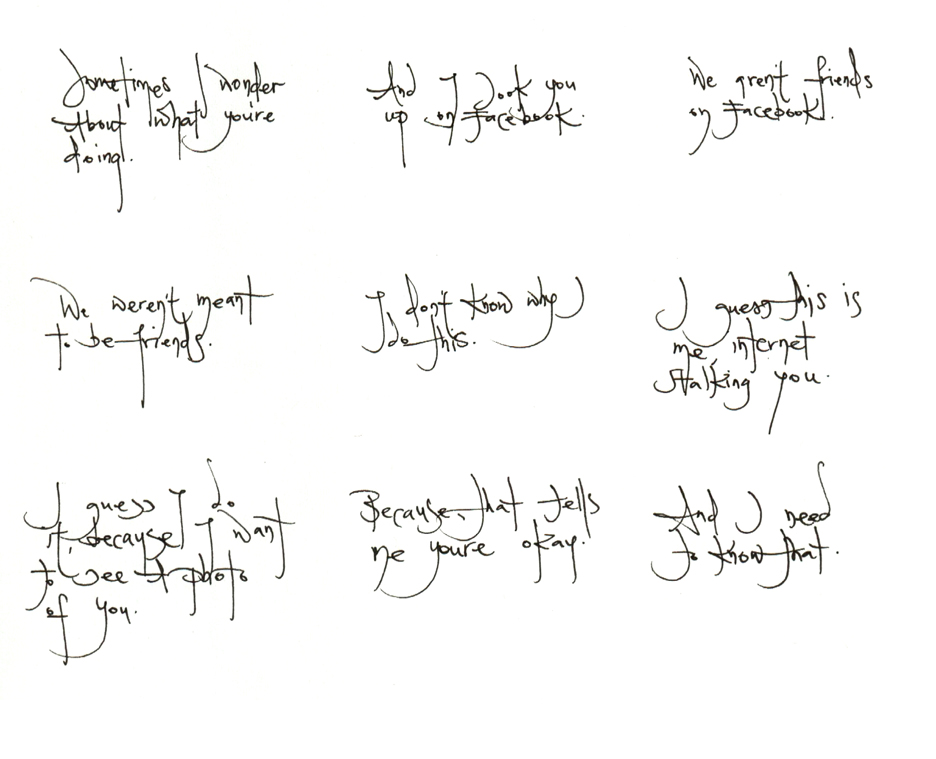 Sometimes I wonder
About what you're
doing.
And I look you
up on Facebook.
We aren't friends
on Facebook.
We weren't meant
to be friends.
I don't know why
I do this.
I guess this is
me, internet
stalking you.
I guess I do
it, because I want
to see a photo
of you.
Because, that tells
me you're okay.
And I need
to know that.